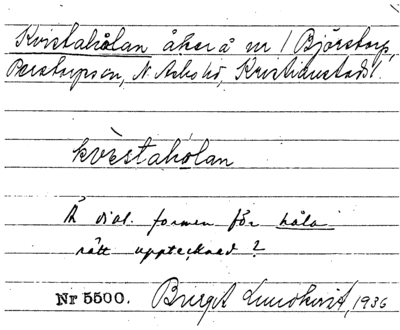 Kvistahålan åker å nr 1 Björstorp,
Perstorps sn, N. Åsbo hd, Kristianstads l.
kvistahólan
Är dial. formen för håla
rätt upptecknad?
Nr 5500. Birgit Lundkvist, 1936